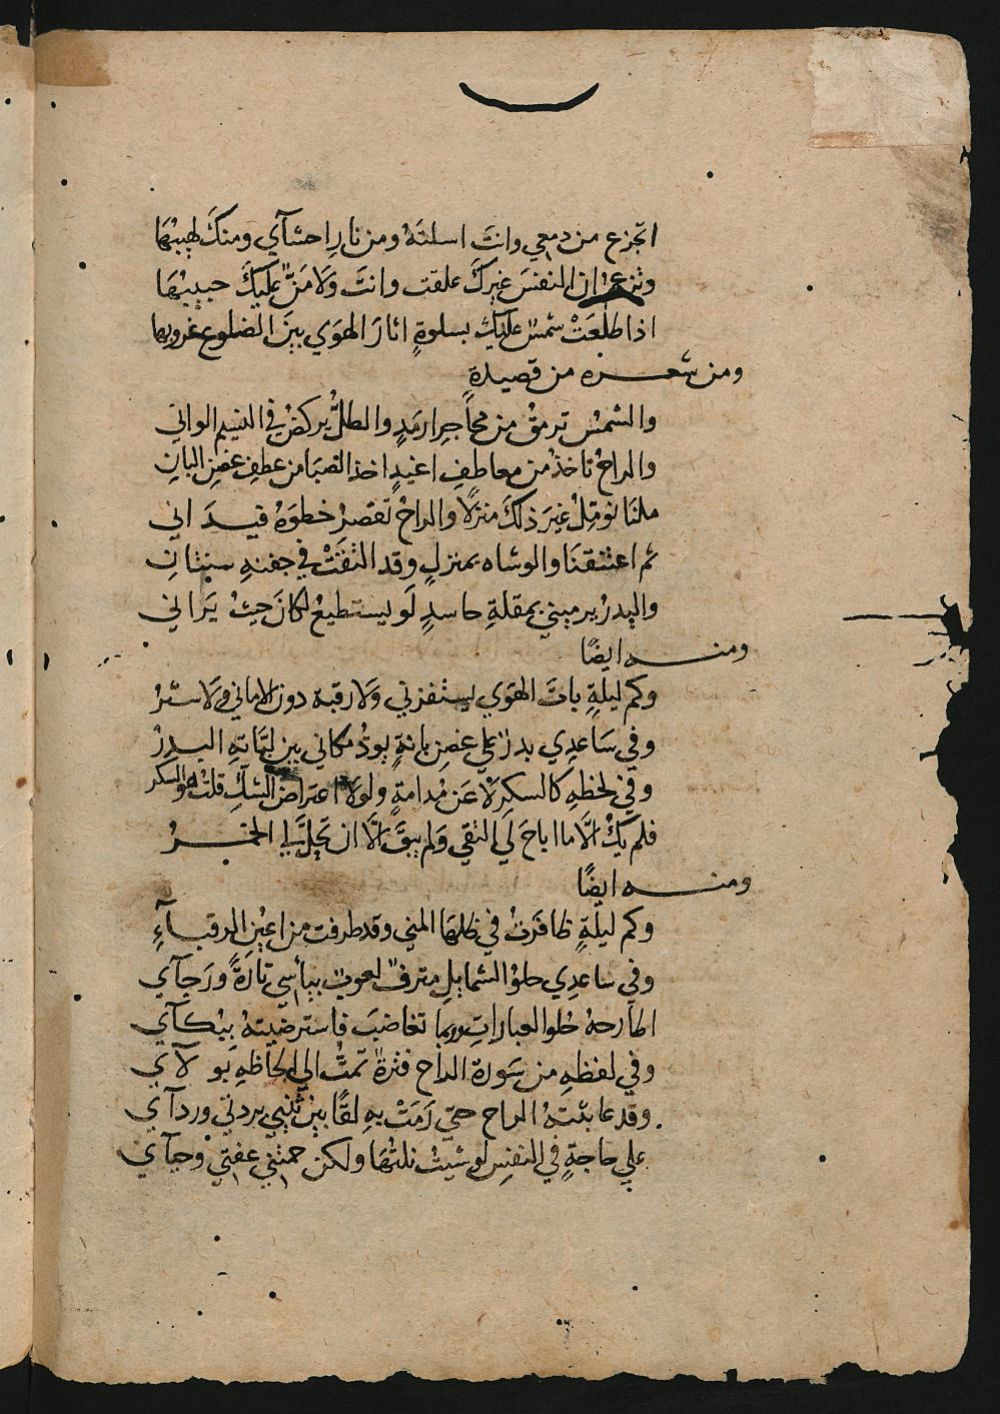 اتجزع من دمعي وانتَ اسلتهُ ومن نارِ احشآي ومنكَ لهيبُهَا
وتزعم ان النفسَ غيركَ علقت وانتَ وَلَا مَنٌّ عليكَ حبيبُهَا
اذا طلَعَتْ شمسٌ عليكَ بسلوةٍ اثارَ الهوَي بينَ الضلوعِ غروبها
ومن شعره من قصيدةٍ
والشمسُ ترمقُ من محاجرِ ارمَدٍ والطلُّ يركضُ في النسيم الواني
والراحُ تاخذُ من معاطفِ اغيدٍ اخذَ الصبَا من عطفِ غصنِ البانِ
ملنَا نومّلُ غيرَ ذلكَ منزلًا والراحُ تقصرُ خطوَهُ فيدَ اني
ثم اعتنقنَا والوشاه بمنزلٍ وقد التقَتْ في جفنهِ سِنَتانِ
والبدرُ يرميني بمقلةِ حاسدٍ لَو يستطيعُ لكانَ حيثُ يَراني
ومنه ايضًا
وكم ليلةٍ باتَ الهوَي يستفزني وَلَا رقبة دون الاماني وَلَا سترُ
وفي سَاعدِي بدرٌ علي غصنِ بانةٍ يودُّ مكاني بين لبَّاتهِ البدرُ
وفي لحظهِ كالسكرِ لَا عَن مُدامةٍ ولولَا اعتراضُ الشكِّ قلتُ هو السكر
فلم يكُ الَّا ما اباحَ لَي التقي وَلم يبقَ الَّا ان تَحِلَّ لي الخمرُ
ومنه ايضًا
وكم ليلَةٍ ظافَرتُ في ظلهَا المني وقد طرفت من اعيُنِ الرقبآءِ
وفي ساعدِي حلوُ الشمايلِ مترفٌ لعوبٌ بيأسي تارَةً ورَجآي
اطارحهُ حُلوَ العبارِاتِ وربما تغاضبَ فاسترضَيتهُ ببُكآي
وفي لفظهِ من سَورة الراحِ فترةٌ تمتُّ الي الحاظهِ بوَلآي
وقد عابثتهُ الراح حتي رَمَتْ بهِ لقًا بين ثنيي بردتي وردآي
علي حاجةٍ في النفسِ لو شيتُ نلتُهَا ولكن حمتني عفتي وحيآي